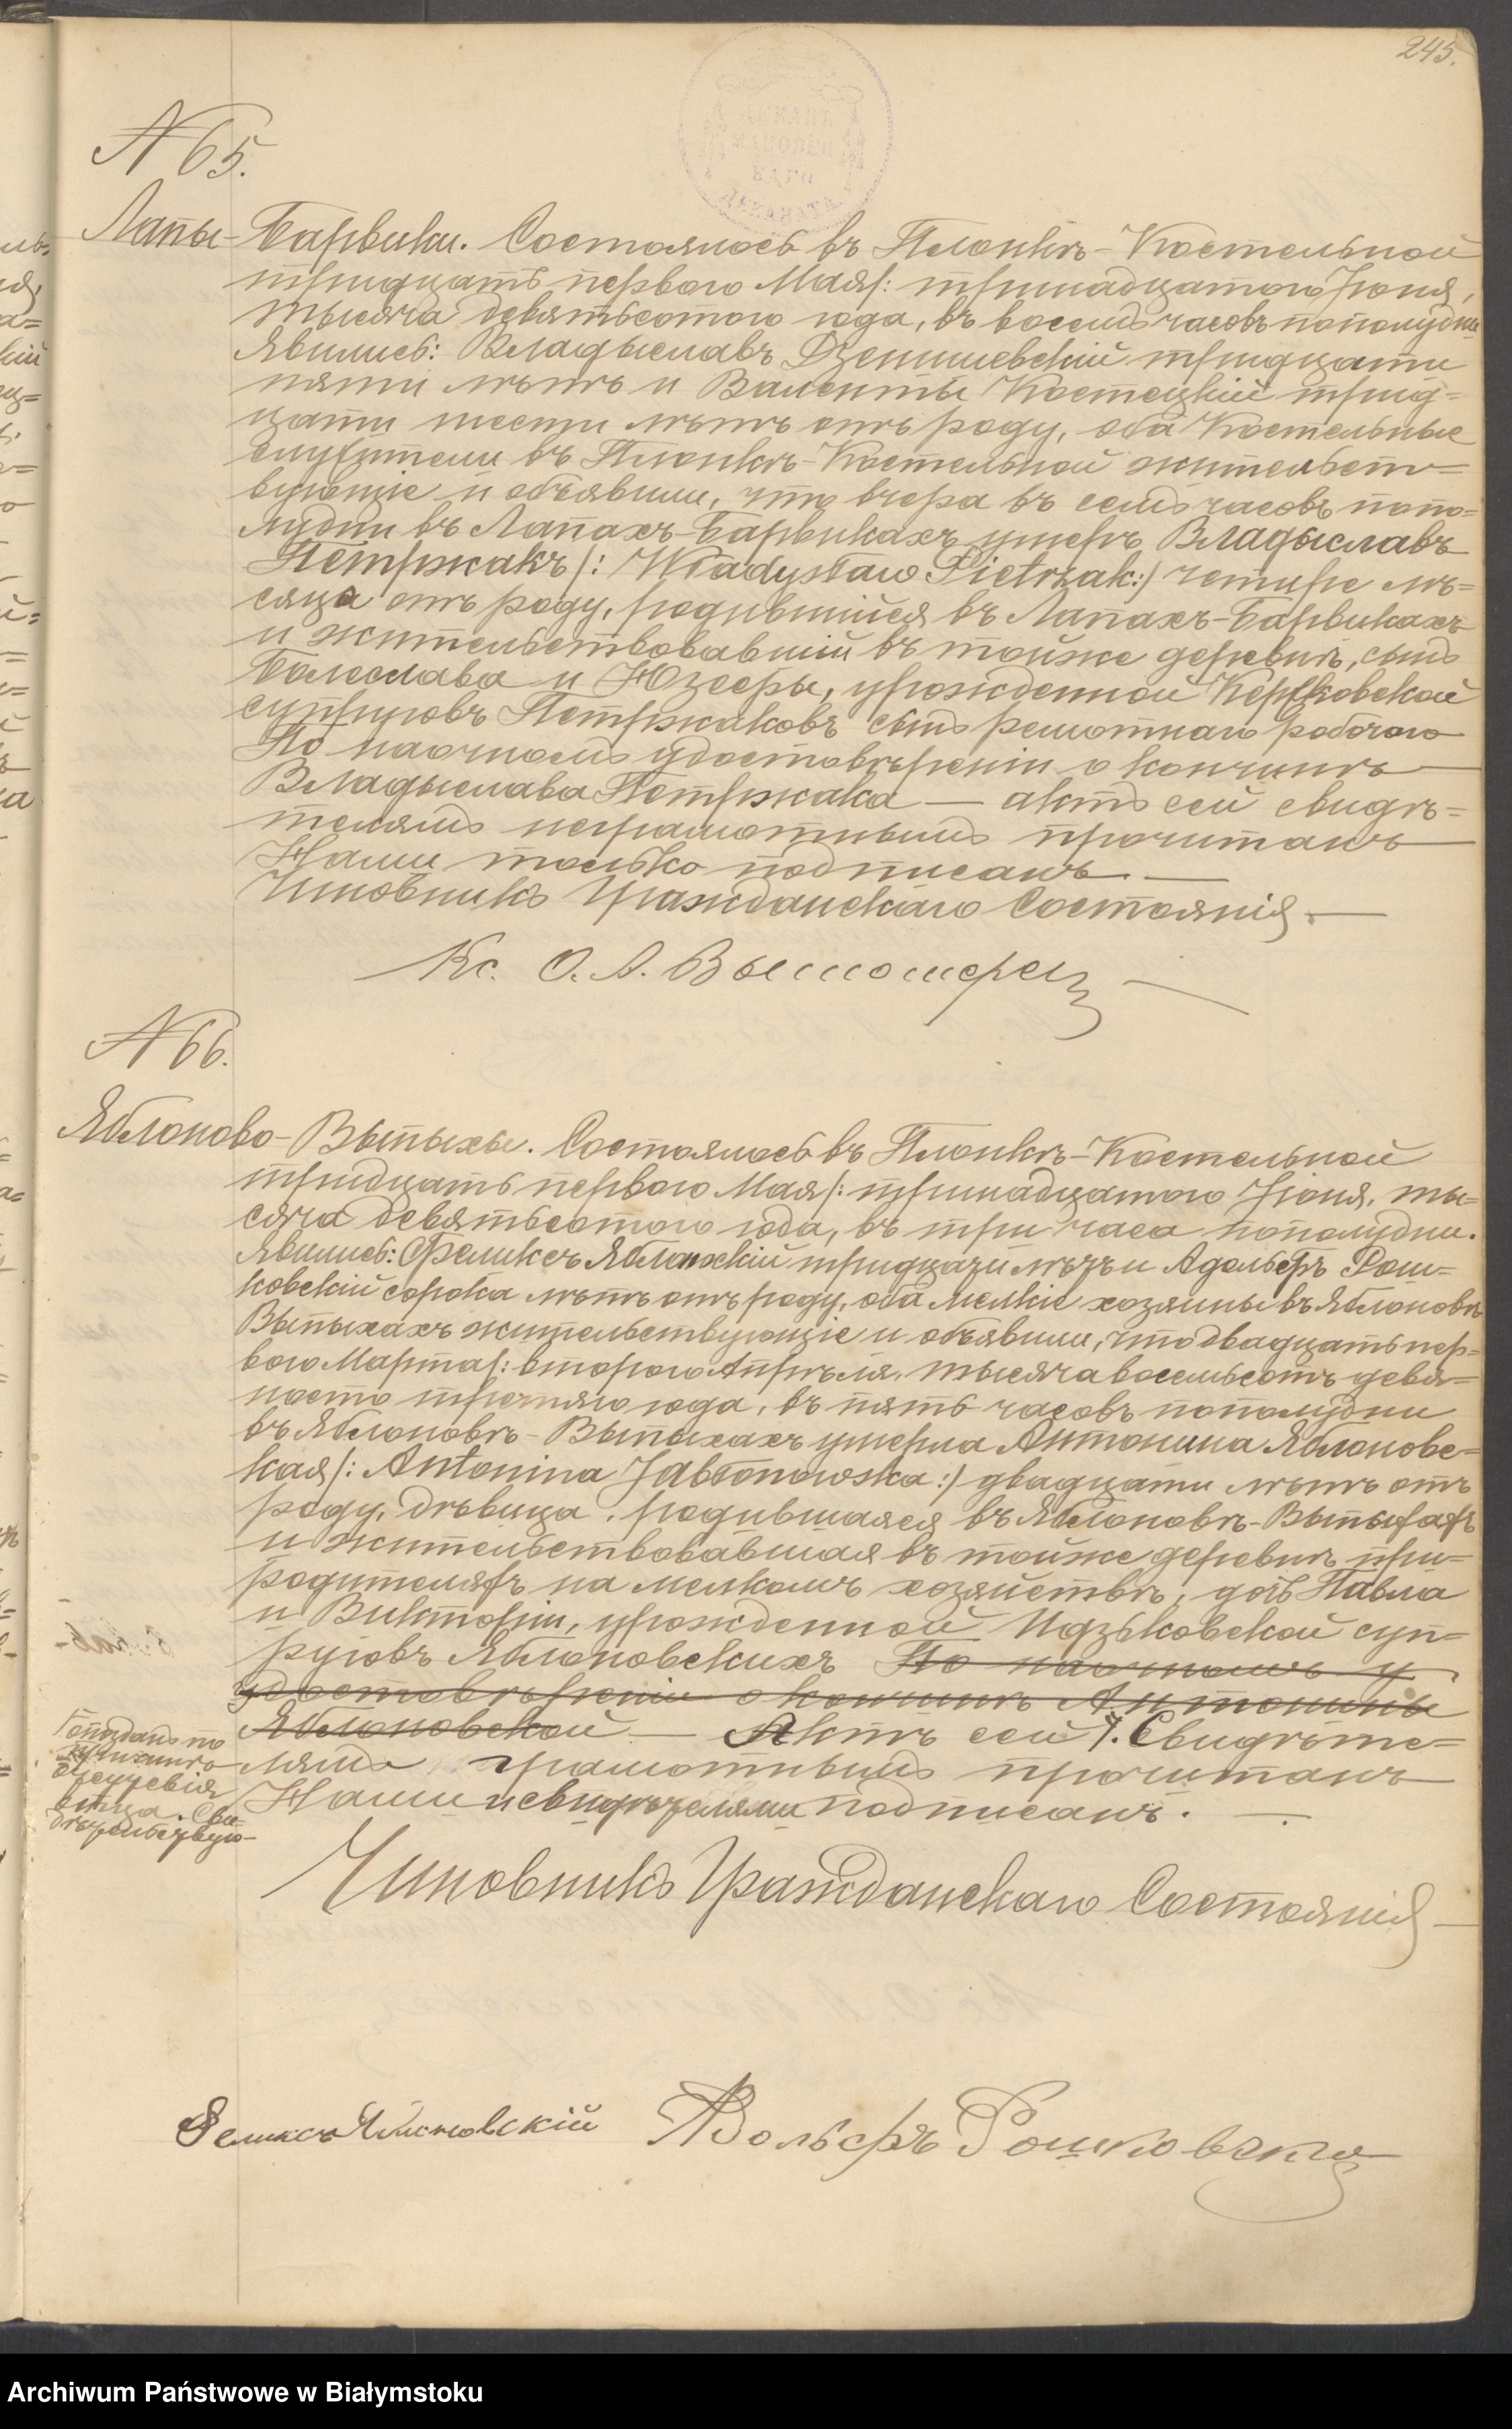 245.
ДЕКАНЪ
МАЗОВЕЦ
КАГО
ДЕКАНАТА
N 65.
Лапы-Барвики. Состоялось въ Плонкѣ-Костельной
тридцать перваго Мая /: тринадцатаго Іюня,
тысяча девятьсотого года, въ восемь часовъ пополудни
Явились: Владыславъ Дзенишевскій тридцати
пяти лѣтъ и Валенты Костецкій трид-
цати шести лѣтъ отъ роду, оба Костельные
служители въ Плонкѣ-Костельной жительств-
вующіе и объявили, что вчера въ семь часовъ попо-
лудни въ Лапахъ-Барвикахъ умеръ Владыславъ
Петржакъ /: Władysław Pietrzak :/ четыре мѣ-
сяца отъ роду, родившійся въ Лапахъ-Барвикахъ
и жительствовавшій въ тойже деревнѣ, сынъ
Болеслава и Юзефы, урожденной
супруговъ Петржаковъ сынъ рабочаго
По наочномъ удостовѣреніи о кончинѣ
Владыслава Петржака — актъ сей свидѣ-
телямъ неграмотнымъ прочитанъ
Нами только подписанъ. —
Чиновникъ Гражданскаго Состоянія. —
Кс. О. А.
N 66.
Яблоново-Выпыхы. Состоялось въ Плонкѣ-Костельной
тридцать перваго Мая /: тринадцатаго Іюня, ты-
сяча девятьсотого года, въ три часа пополудни.
Явились: Феликсъ Яблонскій тридцати лѣтъ и Адольфъ Рош-
ковскій сорока лѣтъ отъ роду, оба мелкіе хозяины въ Яблоновѣ
Выпыхахъ жительствующіе и объявили, что двадцать пер-
ваго Марта /: второго Апрѣля, тысяча восемьсотъ девя-
носто третяго года, въ пять часовъ пополудни
въ Яблоновѣ-Выпыхахъ умерла Антонина Яблоновс-
кая /: Antonina Jabłonowska :/ двадцати лѣтъ отъ
роду, дѣвица, родившаяся въ Яблоновѣ-Выпыхахъ
и жительствовавшая въ тойже деревнѣ при-
родителяхъ на мелкомъ хозяйствѣ, дочь Павла
и Викторіи, урожденной Идзьковской суп-
руговъ Яблоновскихъ По наочномъ у
удостовѣреніи о кончинѣ Антонины
Яблоновской — Актъ сей Свидѣте-
лямъ грамотнымъ прочитанъ
Нами и свидѣтелями подписанъ. —
опозданъ по
причинѣ
отца. Сви-
Чиновникъ Гражданскаго Состоянія
Феликсъ Яблоновскій Адольфъ Рошковски
Archiwum Państwowe w Białymstoku